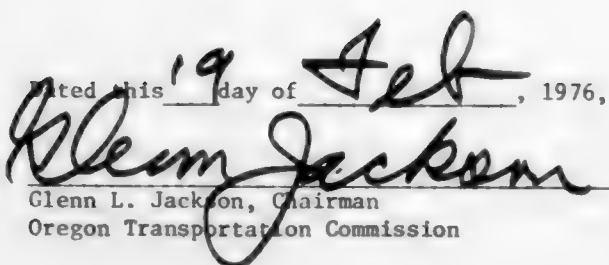 Dated this 19 day of Feb, 1976,
Glenn Jackson
Glenn L. Jackson, Chairman
Oregon Transportation Commission